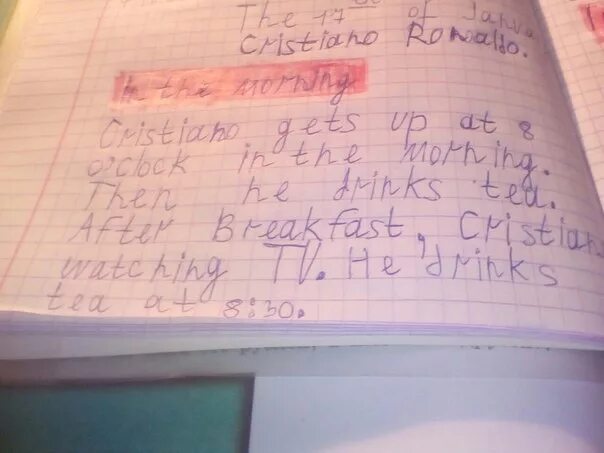 The 17 of Janua
Cristiano Ronaldo.
in the morning
Cristiano gets up at 8
o'clock in the morning.
Then he drinks tea.
After Breakfast, Cristian
watching TV. He drinks
tea at 8:30.